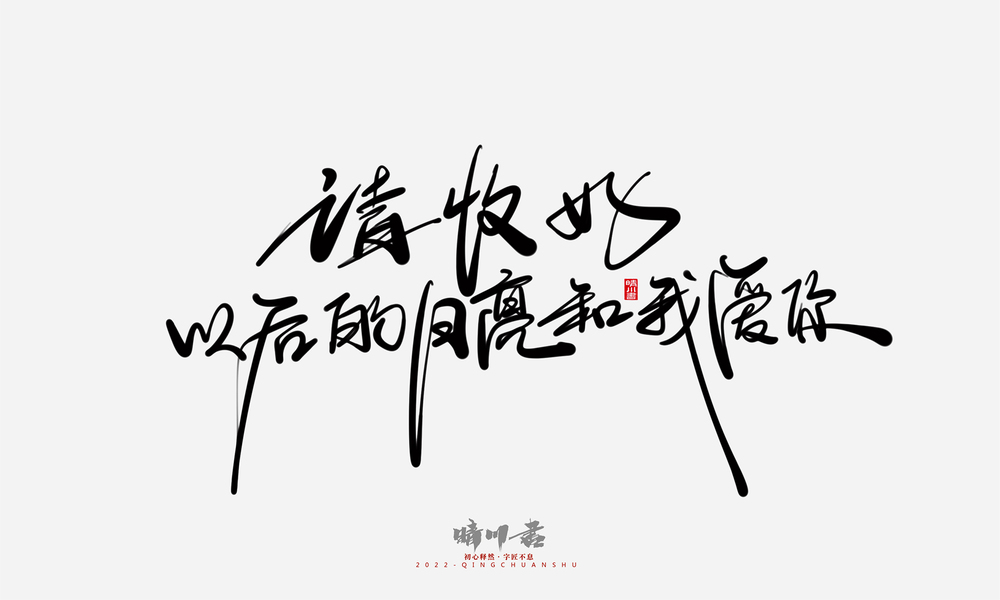 请收好
以后的月亮和我爱你
晴川書
晴川書
初心释然·字匠不息
2022-QINGCHUANSHU